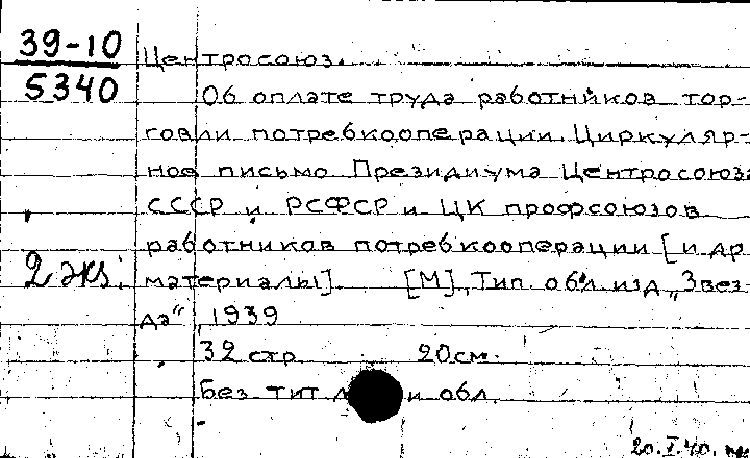 39-10
5340
Центросоюз.
Об оплате труда работников тор-
говли потребкооперации. Циркуляр-
ное письмо Президиума Центросоюза
СССР и РСФСР и ЦК профсоюзов
работников потребкооперации [и др
материалы]. [М], Тип. обл. изд „Звез-
да“, 1939
32 стр 20см.
Без тит л и обл.
2 экз.
20.I.40.